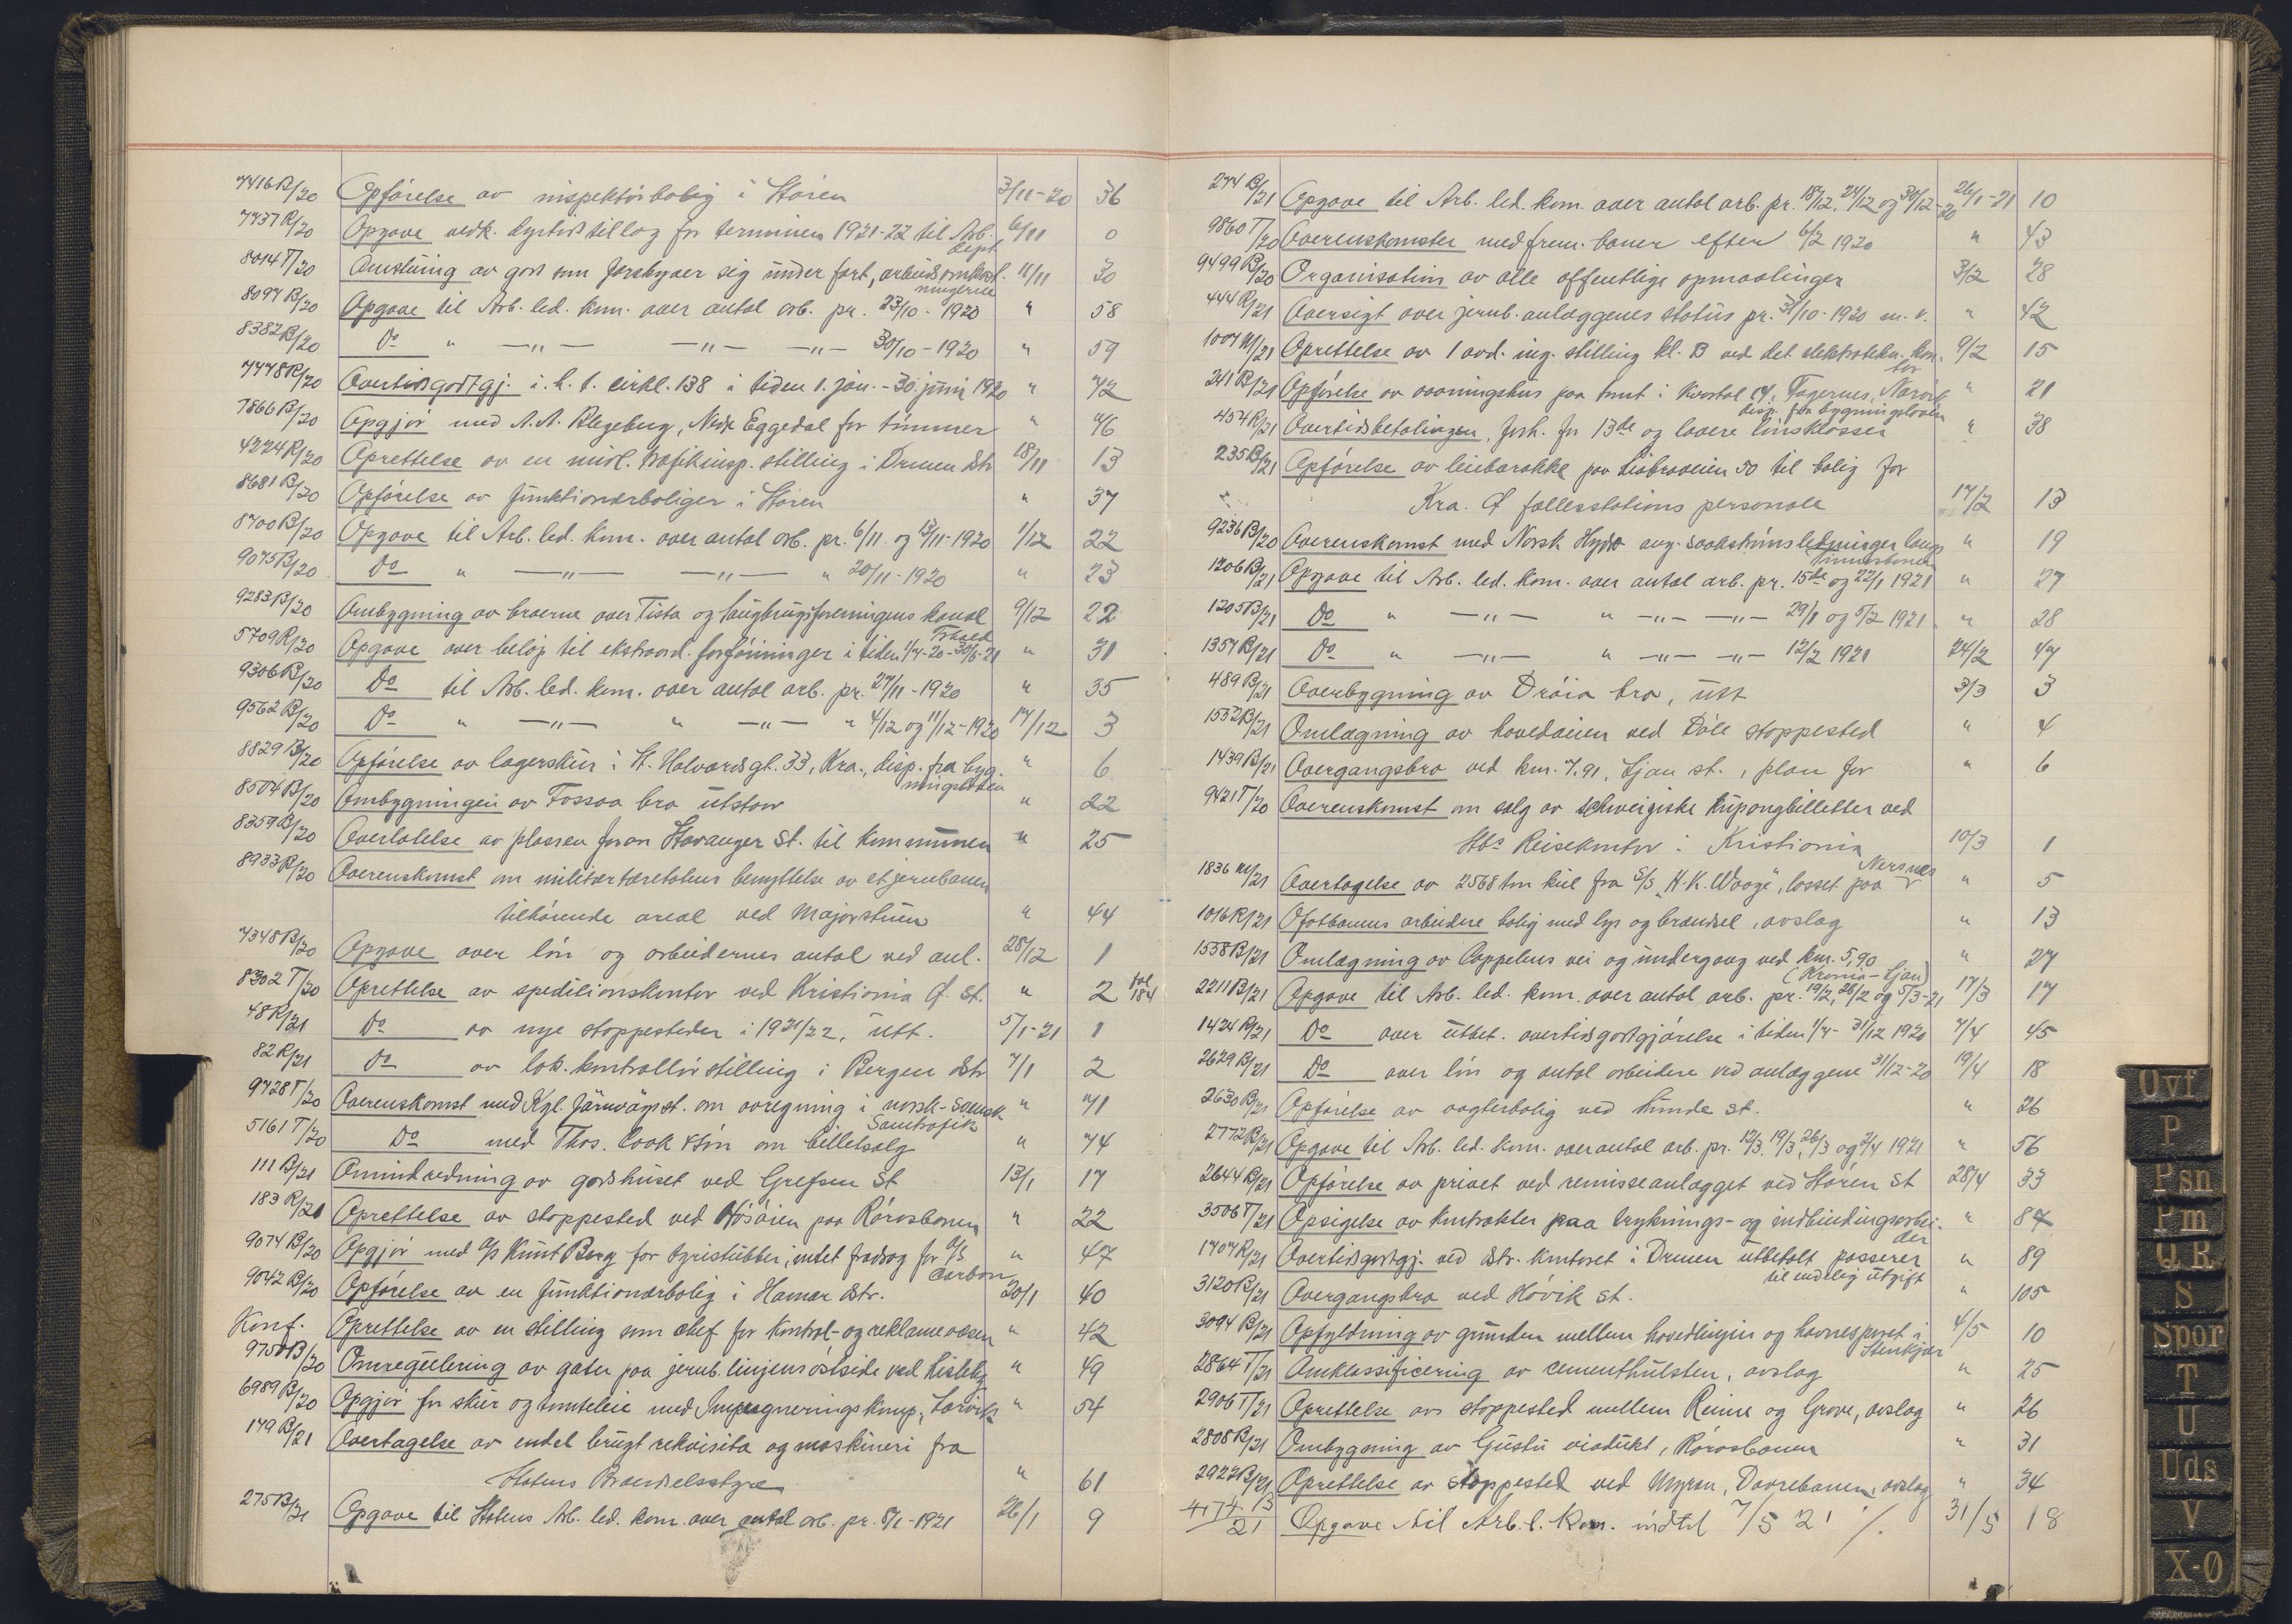 7416 R/20 Opførelse av inspektørbolig i Støren 3/11-20 36
7737 R/20 Opgave vedk. dyrtidstillæg for terminen 1921-22 til Arb. dept 6/11 0
8014 T/20 Omstuing av gods som forskyver sig under fart, arbeidsomkostningerne 11/11 30
8097 B/20 Opgave til Arb. led. kom. over antal arb. pr. 23/10-1920 " 58
8382 B/20 Do " —"— —"— —"— 30/10-1920 " 59
7778 R/20 Overtidsgodtgj. i.h.t. cirkl. 138 i tiden 1. jan. - 30. juni 1920 " 72
7866 B/20 Opgjør med A.A. Blegeberg, Nedre Eggedal for tømmer " 76
4224 R/20 Oprettelse av en midl. trafikinsp. stilling i Drmen Dstr 18/11 13
8681 B/20 Opførelse av funktionærboliger i Støren " 37
8700 B/20 Opgave til Arb. led. kom. over antal arb. pr. 6/11 og 13/11-1920 1/12 22
9075 B/20 Do " —"— —"— " 20/11-1920 " 23
9283 B/20 Ombygning av broerne over Tista og Saugbrugsforeningens kanal Frhald 9/12 22
5709 R/20 Opgave over beløp til ekstraord. forføininger i tiden 1/7-20-30/6-21 " 31
9306 B/20 Do til Arb. led. kom. over antal arb. pr. 27/11-1920 " 35
9562 B/20 Do " —"— " —"— " 4/12 og 11/12-1920 17/12 3
8829 B/20 Opførelse av lagerskur i St. Halvardsgt. 33, Kra., disp. fra bygningsloven " 6
8504 B/20 Ombygningen av Fossaa bro utstaar " 22
8359 B/20 Overlatelse av plassen foran Stavanger St. til kommunen " 25
8933 R/20 Overenskomst om militæretatens benyttelse av et jernbanen
tilhørende areal ved Majorstuen " 44
7348 B/20 Opgave over løn og arbeidernes antal ved anl. 28/12 1
8302 T/20 Oprettelse av speditionskontor ved Kristiania Ø. St. " 2 fol 184
48 R/21 Do av nye stoppesteder i 1921/22, utt. 5/1-21 1
82 R/21 Do av lok. kontrollør stilling i Bergen Dstr 7/1 2
9728 T/20 Overenskomst med Kgl. Järnvägsst. om avregning i norsk-svensk Samtrafik " 71
5161 T/20 Do med Thos. Cook & Søn om billetsalg " 74
111 B/21 Omindredning av godshuset ved Grefsen St 13/1 17
183 R/21 Oprettelse av stoppested ved Høsøien paa Rørosbanen " 22
9074 B/20 Opgjør med A/S Knut Berg for tyristubber, intet fradrag for A/S Carbon " 47
9042 B/20 Opførelse av en funktionærbolig i Hamar Dstr. 20/1 40
Konf. Oprettelse av en stilling som chef for kontrol- og reklamevæsen " 42
9750 B/20 Omregulering av gater paa jernb. linjens østside ved Lisleby " 49
6989 B/20 Opgjør for skur og tomteleie med Imprægneringskomp, Larvik " 54
149 B/21 Overtagelse av endel brugt rekvisita og maskineri fra
Statens Brændselsstyre " 61
275 B/21 Opgave til Statens Arb. led. kom. over antal arb. pr. 8/1-1921 26/1 9
274 B/21 Opgave til Arb. led. kom. over antal arb. pr. 18/12, 24/12 og 30/12-20 26/1-21 10
9860 T/20 Overenskomster med frem. baner efter 6/2 1920 " 43
9499 B/20 Organisation av alle offentlige opmaalinger 3/2 28
444 R/21 Oversigt over jernb. anlæggenes status pr. 31/10-1920 m.v. " 42
1007 M/21 Oprettelse av 1 avd. ing. stilling kl. B ved det elektrotekn. kontor 9/2 15
241 B/21 Opførelse av vaaningshus paa tomt i Kvartal 14, Fagernes, Narvik disp. fra bygningsloven " 21
454 R/21 Overtidsbetalingen, forh. for 13de og lavere lønsklasser " 38
235 B/21 Opførelse av leiebarakke paa Ljabroveien 50 til bolig for
Kra. Ø fællesstations personale 17/2 13
9236 B/20 Overenskomst med Norsk Hydro ang. svakstrømsledninger langs Tinnosbanen " 19
1206 B/21 Opgave til Arb. led. kom. over antal arb. pr. 15de og 22/1 1921 " 27
1205 B/21 Do " —"— " —"— —"— 29/1 og 5/2 1921 " 28
1357 B/21 Do " —"— " —"— —"— 12/2 1921 24/2 47
489 B/21 Overbygning av Drøia bro, utt 3/3 3
1532 B/21 Omlægning av hovedveien ved Dôle stoppested " 4
1439 B/21 Overgangsbro ved km. 7.91, Ljan st., plan for " 6
9421 T/20 Overenskomst om salg av schweiziske kupongbilletter ved
Stbs Reisekontor i Kristiania 10/3 1
1836 M/21 Overtagelse av 2568 ton kul fra S/S "H.K. Waage", losset paa Nersnes " 5
1016 R/21 Ofotbanens arbeidere bolig med lys og brændsel, avslag " 13
1558 B/21 Omlægning av Cappelens vei og undergang ved km. 5,90 (Krania-Ljan) " 27
2211 B/21 Opgave til Arb. led. kom. over antal arb. pr. 19/2, 26/2 og 5/3-21 17/3 17
1424 R/21 Do over utbet. overtidsgodtgjørelse i tiden 1/7-31/12 1920 7/4 45
2629 B/21 Do over løn og antal arbeidere ved anlæggene 31/12-20 19/4 18
2630 B/21 Opførelse av vogterbolig ved Lunde st. " 26
2772 B/21 Opgave til Arb. led. kom. over antal arb. pr. 12/3, 19/3, 26/3 og 2/4 1921 " 56
2644 B/21 Opførelse av privet ved remisseanlægget ved Støren St 28/4 33
3506 T/21 Opsigelse av kontrakter paa tryknings- og indbindingsarbeider " 87
1707 R/21 Overtidsgodtgj. ved Dstr. kontoret i Drmen utbetalt passerer til endelig utgift " 89
3120 B/21 Overgangsbro ved Høvik st. " 105
3094 B/21 Opfyldning av grunden mellem hovedlinjen og havnesporet i Stenkjær 4/5 10
2864 T/21 Omklassificering av cementhulsten, avslag " 25
2906 T/21 Oprettelse av stoppested mellem Reime og Grove, avslag " 26
2808 B/21 Ombygning av Gustu viadukt, Rørosbanen " 31
2927 B/21 Oprettelse av stoppested ved Myran, Dovrebanen, avslag " 34
4174 B/21 Opgave til Arb. l. Kom. indtil 7/5 21 ./. 31/5 18
Ovf
P
Psn
Pm
Q R
S
Spor
T
U
Uds
V
X-Ø